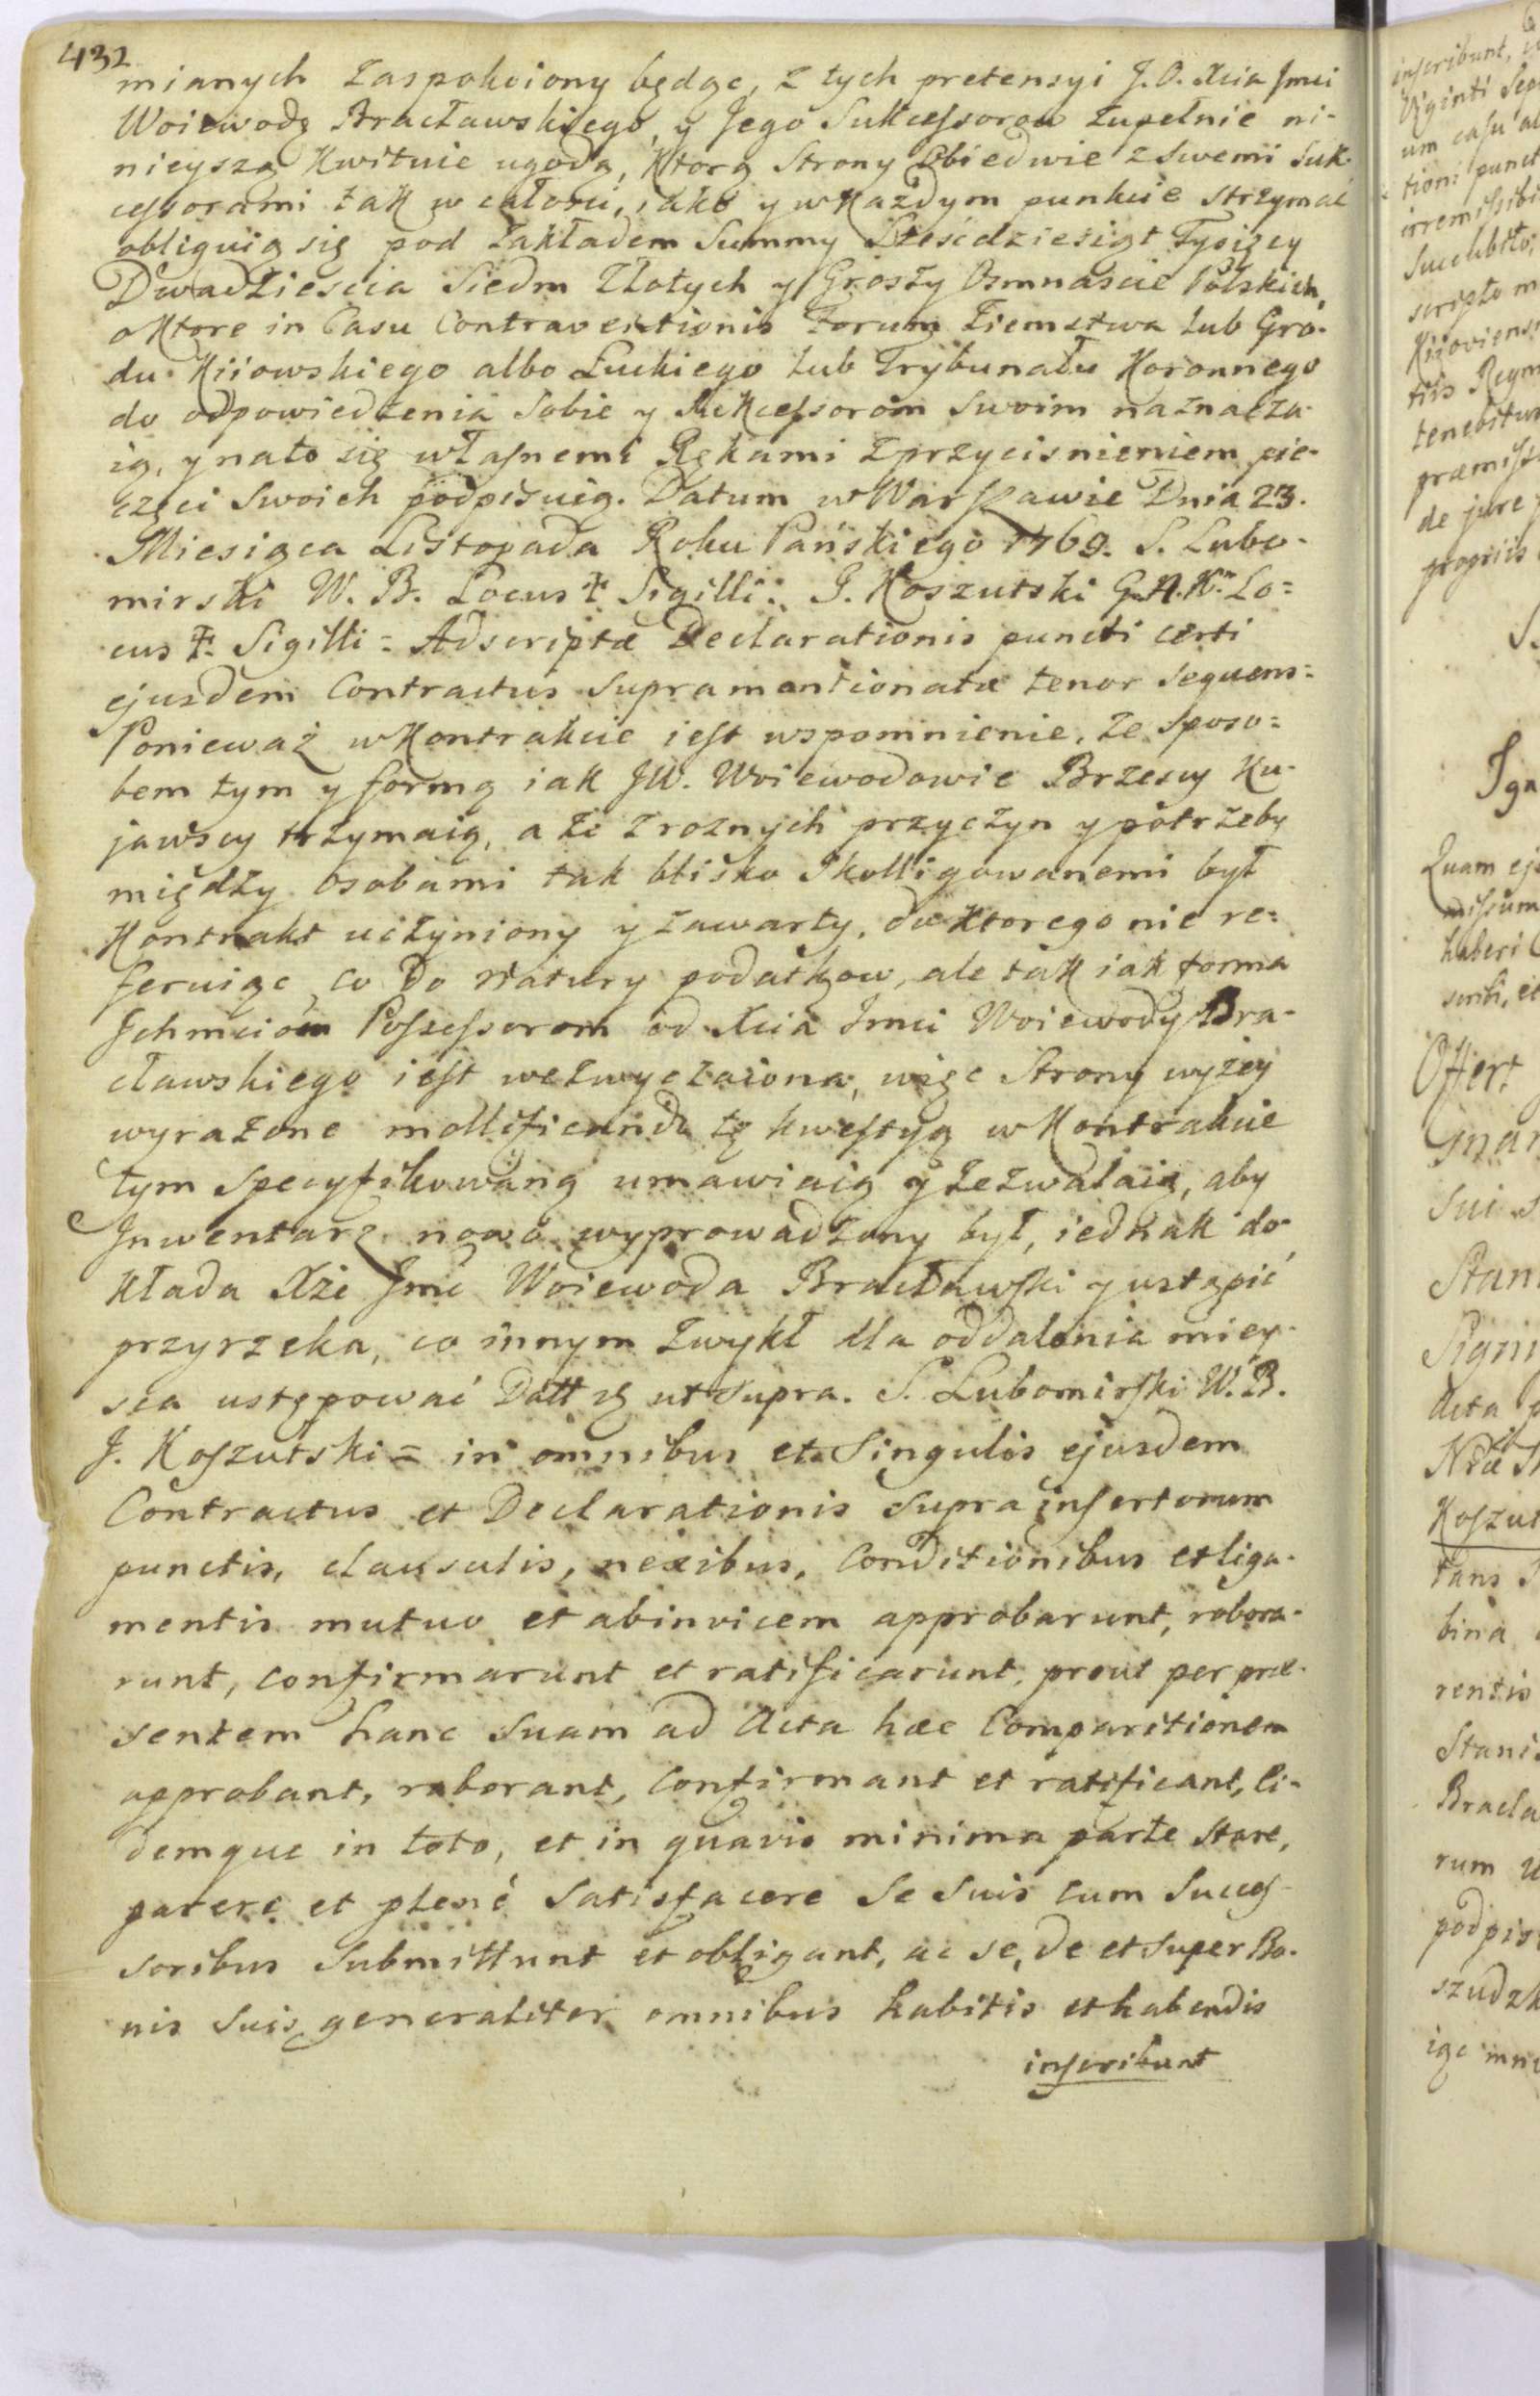 432
mianych zaspokoiony będąc, z tych pretensyi J. O. Xcia Jmci
Woiewodę Bracławskiego, y Jego Sukcessorow zupełnie ni-
nieyszą Kwituie ugodą, Ktorą Strony Obiedwie z swemi Suk-
cessorami tak w całości, iako y w Każdym punkcie strzymać
obliguią się pod Zakładem Summy Sześćdziesiąt Tysięcy
Dwadzieścia Siedm Złotych y Groszy Osmnaście Polskich,
o Ktore in Casu Contraventionis Forum Ziemstwa lub Gro-
du Kiiowskiego albo Łuckiego lub Trybunału Koronnego
do odpowiedzenia Sobie y Sukcessorom Swoim naznacza-
ią, y na to się własnemi Rękami z przycisnieniem pie-
częci Swoich podpisuią. Datum w Warszawie Dnia 23.
Miesiąca Listopada Roku Pańskiego 1769. S. Lubo-
mirski W. B. Locus ‡ Sigilli: J. Koszutski G. N. K. Lo=
cus ‡ Sigilli = Adscriptæ Declarationis puncti certi
ejusdem Contractus supramentionatæ tenor sequens=
Ponieważ w Kontrakcie iest wspomnienie, że sposo=
bem tym y formą iak JW. Woiewodowie Brzescy Ku-
jawscy trzymaią, a że z roznych przyczyn y potrzeby
między osobami tak blisko Skolligowanemi był
Kontrakt uczyniony y zawarty, do Ktorego nie re=
feruiąc co do Natury podatkow, ale tak iak forma
Jchmciom Possessorom od Xcia Jmci Woiewody Bra-
cławskiego iest wezwyczaiona, więc Strony wyżey
wyrażone mollificando tę kwestyą w Kontrakcie
tym specyfikowaną umawiaią y zezwalaią, aby
Jnwentarz nowo wyprowadzony był, iednak do-
Kłada Xże Jmć Woiewoda Bracławski y ustąpić
przyrzeka, co innym zwykł dla oddalenia miey-
sca ustępować Datt ut supra. S. Lubomirski W. B.
J. Koszutski = in omnibus et Singulis ejusdem
Contractus et Declarationis supra insertorum
punctis, clausulis, nexibus, Conditionibus et liga-
mentis mutuo et abinvicem approbarunt, robora-
runt, confirmarunt et ratificarunt, prout per præ-
sentem hanc suam ad Acta hæc Comparitionem
approbant, roborant, confirmant et ratificant, ii-
demque in toto, et in quavis minima parte stare,
parere et plenè satisfacere se suis cum Succes-
soribus submittunt et obligant, ac se, de et super Bo-
nis suis generaliter omnibus habitis et habendis
inscribunt
inscribunt,
Viginti Sep
um casu al
tioni punct
irremissibi
Succubito,
scripto m
Kijoviens
tiis Regn
tenebitur
præmiss
de jure
propriis
Jgn
Quam ej
missum
haberi
scribi, et
Offert
gnar
sui S
Stan
Pigni
Acta p
Koszut
tans
bina
rentis
Stanis
Bracla
rum
podpis
szudzk
iąc mn